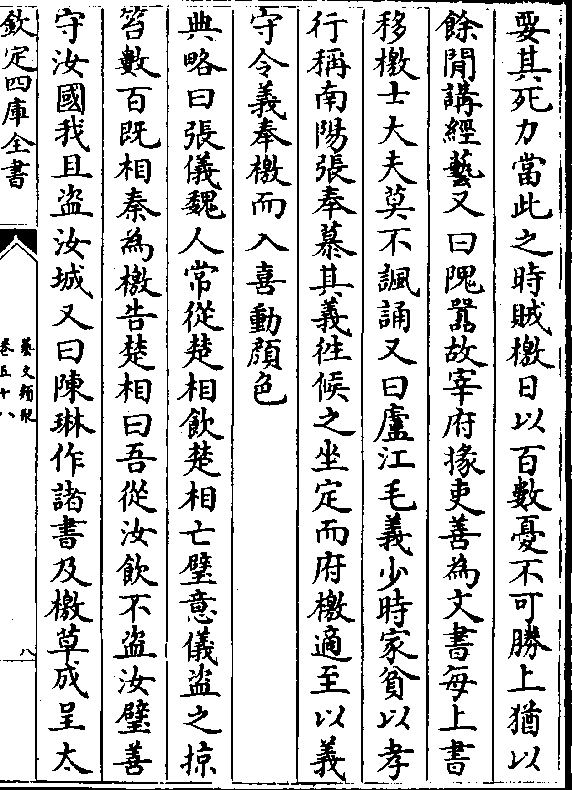 要其死力當此之時賊檄日以百數憂不可勝上猶以
餘閒講經藝又曰隗囂故宰府掾吏善為文書每上書
移檄士大夫莫不諷誦又曰盧江毛義少時家貧以孝
行稱南陽張奉慕其義徃候之坐定而府檄適至以義
守令義奉檄而入喜動顔色
典略曰張儀魏人常從楚相飲楚相亡璧意儀盜之掠
笞數百既相秦為檄告楚相曰吾從汝飲不盜汝璧善
守汝國我且盜汝城又曰陳琳作諸書及檄草成呈太
欽定四庫全書
藝文類聚
卷五十八
八